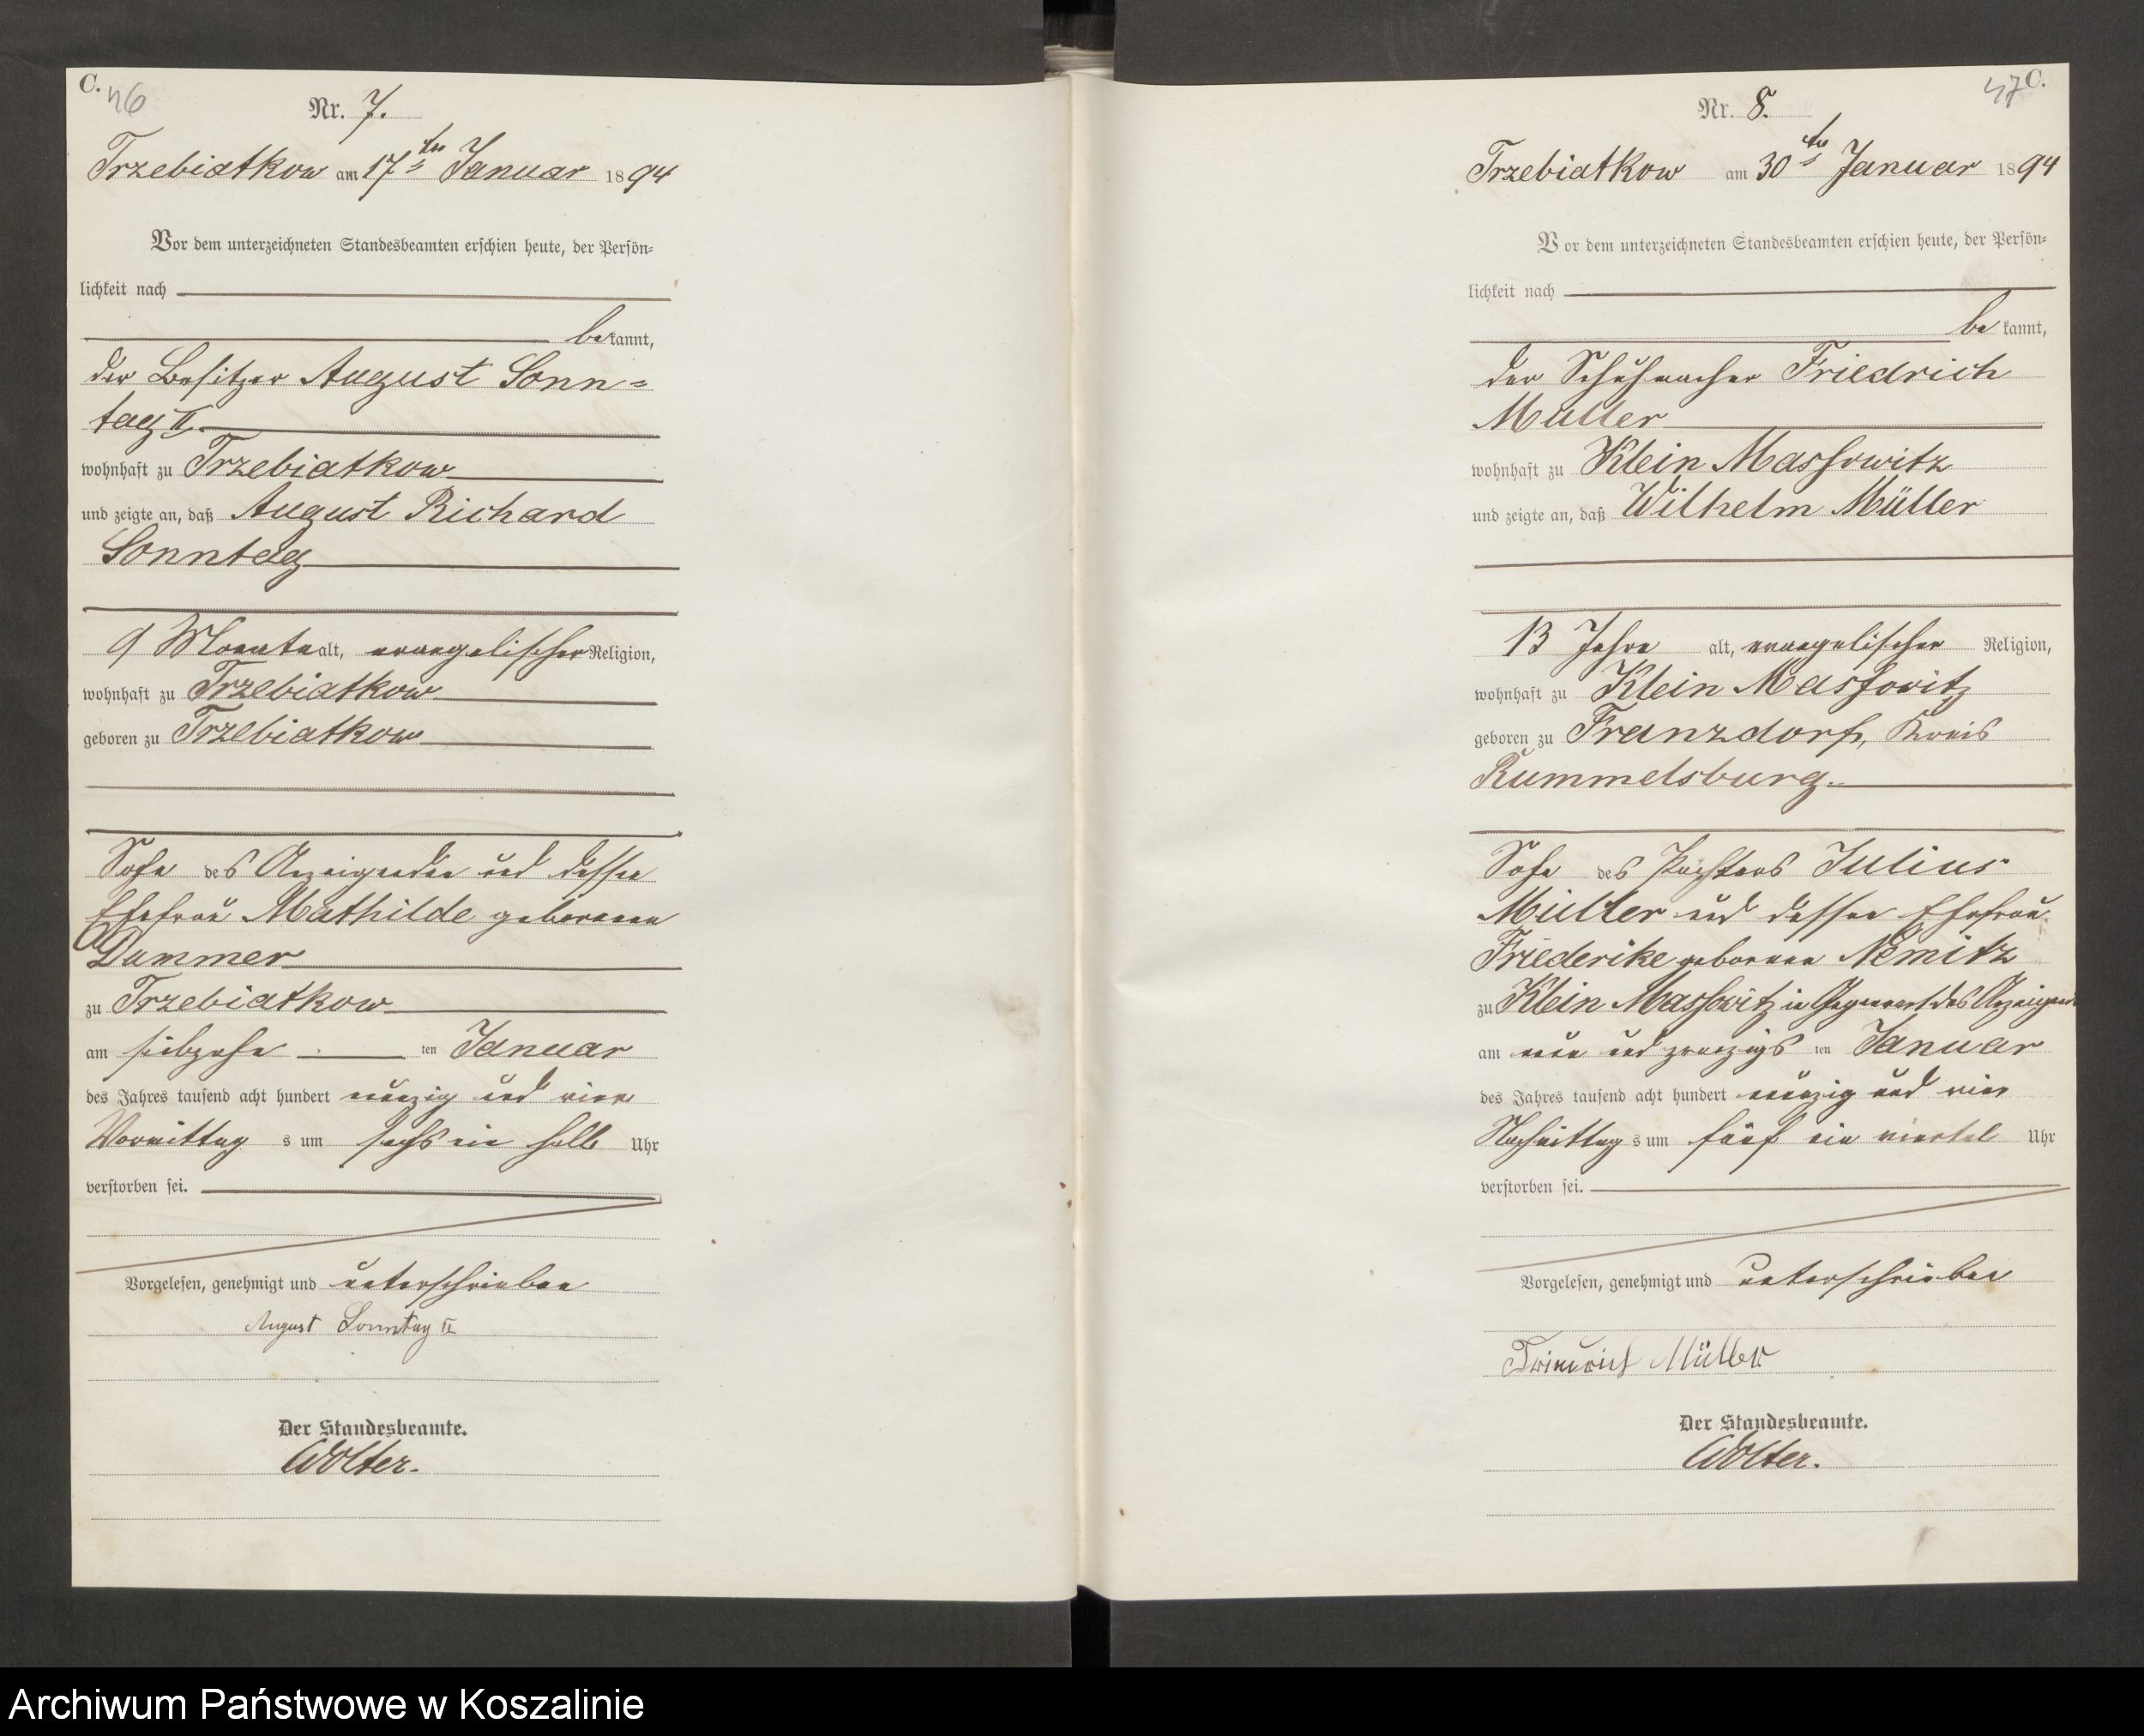 C.
46
Nr. 7.
Trzebiatkow am 17ten Januar 1894
Vor dem unterzeichneten Standesbeamten erschien heute, der Persön-
lichkeit nach
bekannt,
der Besitzer August Sonn-
tag II.
wohnhaft zu Trzebiatkow
und zeigte an, daß August Richard
Sonntag
9 Monate alt, evangelischer Religion,
wohnhaft zu Trzebiatkow
geboren zu Trzebiatkow
Sohn des Anzeigenden und dessen
Ehefrau Mathilde geborenen
Dummer
zu Trzebiatkow
am siebzehn ten Januar
des Jahres tausend acht hundert neunzig und vier
Vormittags um sechs ein halb Uhr
verstorben sei.
Vorgelesen, genehmigt und unterschrieben
August Sonntag II
Der Standesbeamte.
Wolter.
47
C.
Nr. 8.
Trzebiatkow am 30ten Januar 1894
Vor dem unterzeichneten Standesbeamten erschien heute, der Persön-
lichkeit nach
bekannt,
der Schuhmacher Friedrich
Müller
wohnhaft zu Klein Massowitz
und zeigte an, daß Wilhelm Müller
13 Jahre alt, evangelischer Religion,
wohnhaft zu Klein Massowitz
geboren zu Franzdorf, Kreis
Rummelsburg.
Sohn des Pächters Julius
Müller und dessen Ehefrau
Friederike geborenen Nemitz
zu Klein Massowitz in Gegenwart des Anzeigend
am neun und zwanzigs ten Januar
des Jahres tausend acht hundert neunzig und vier
Nachmittags um fünf ein viertel Uhr
verstorben sei.
Vorgelesen, genehmigt und unterschrieben
Friedrich Müller
Der Standesbeamte.
Wolter.
Archiwum Państwowe w Koszalinie